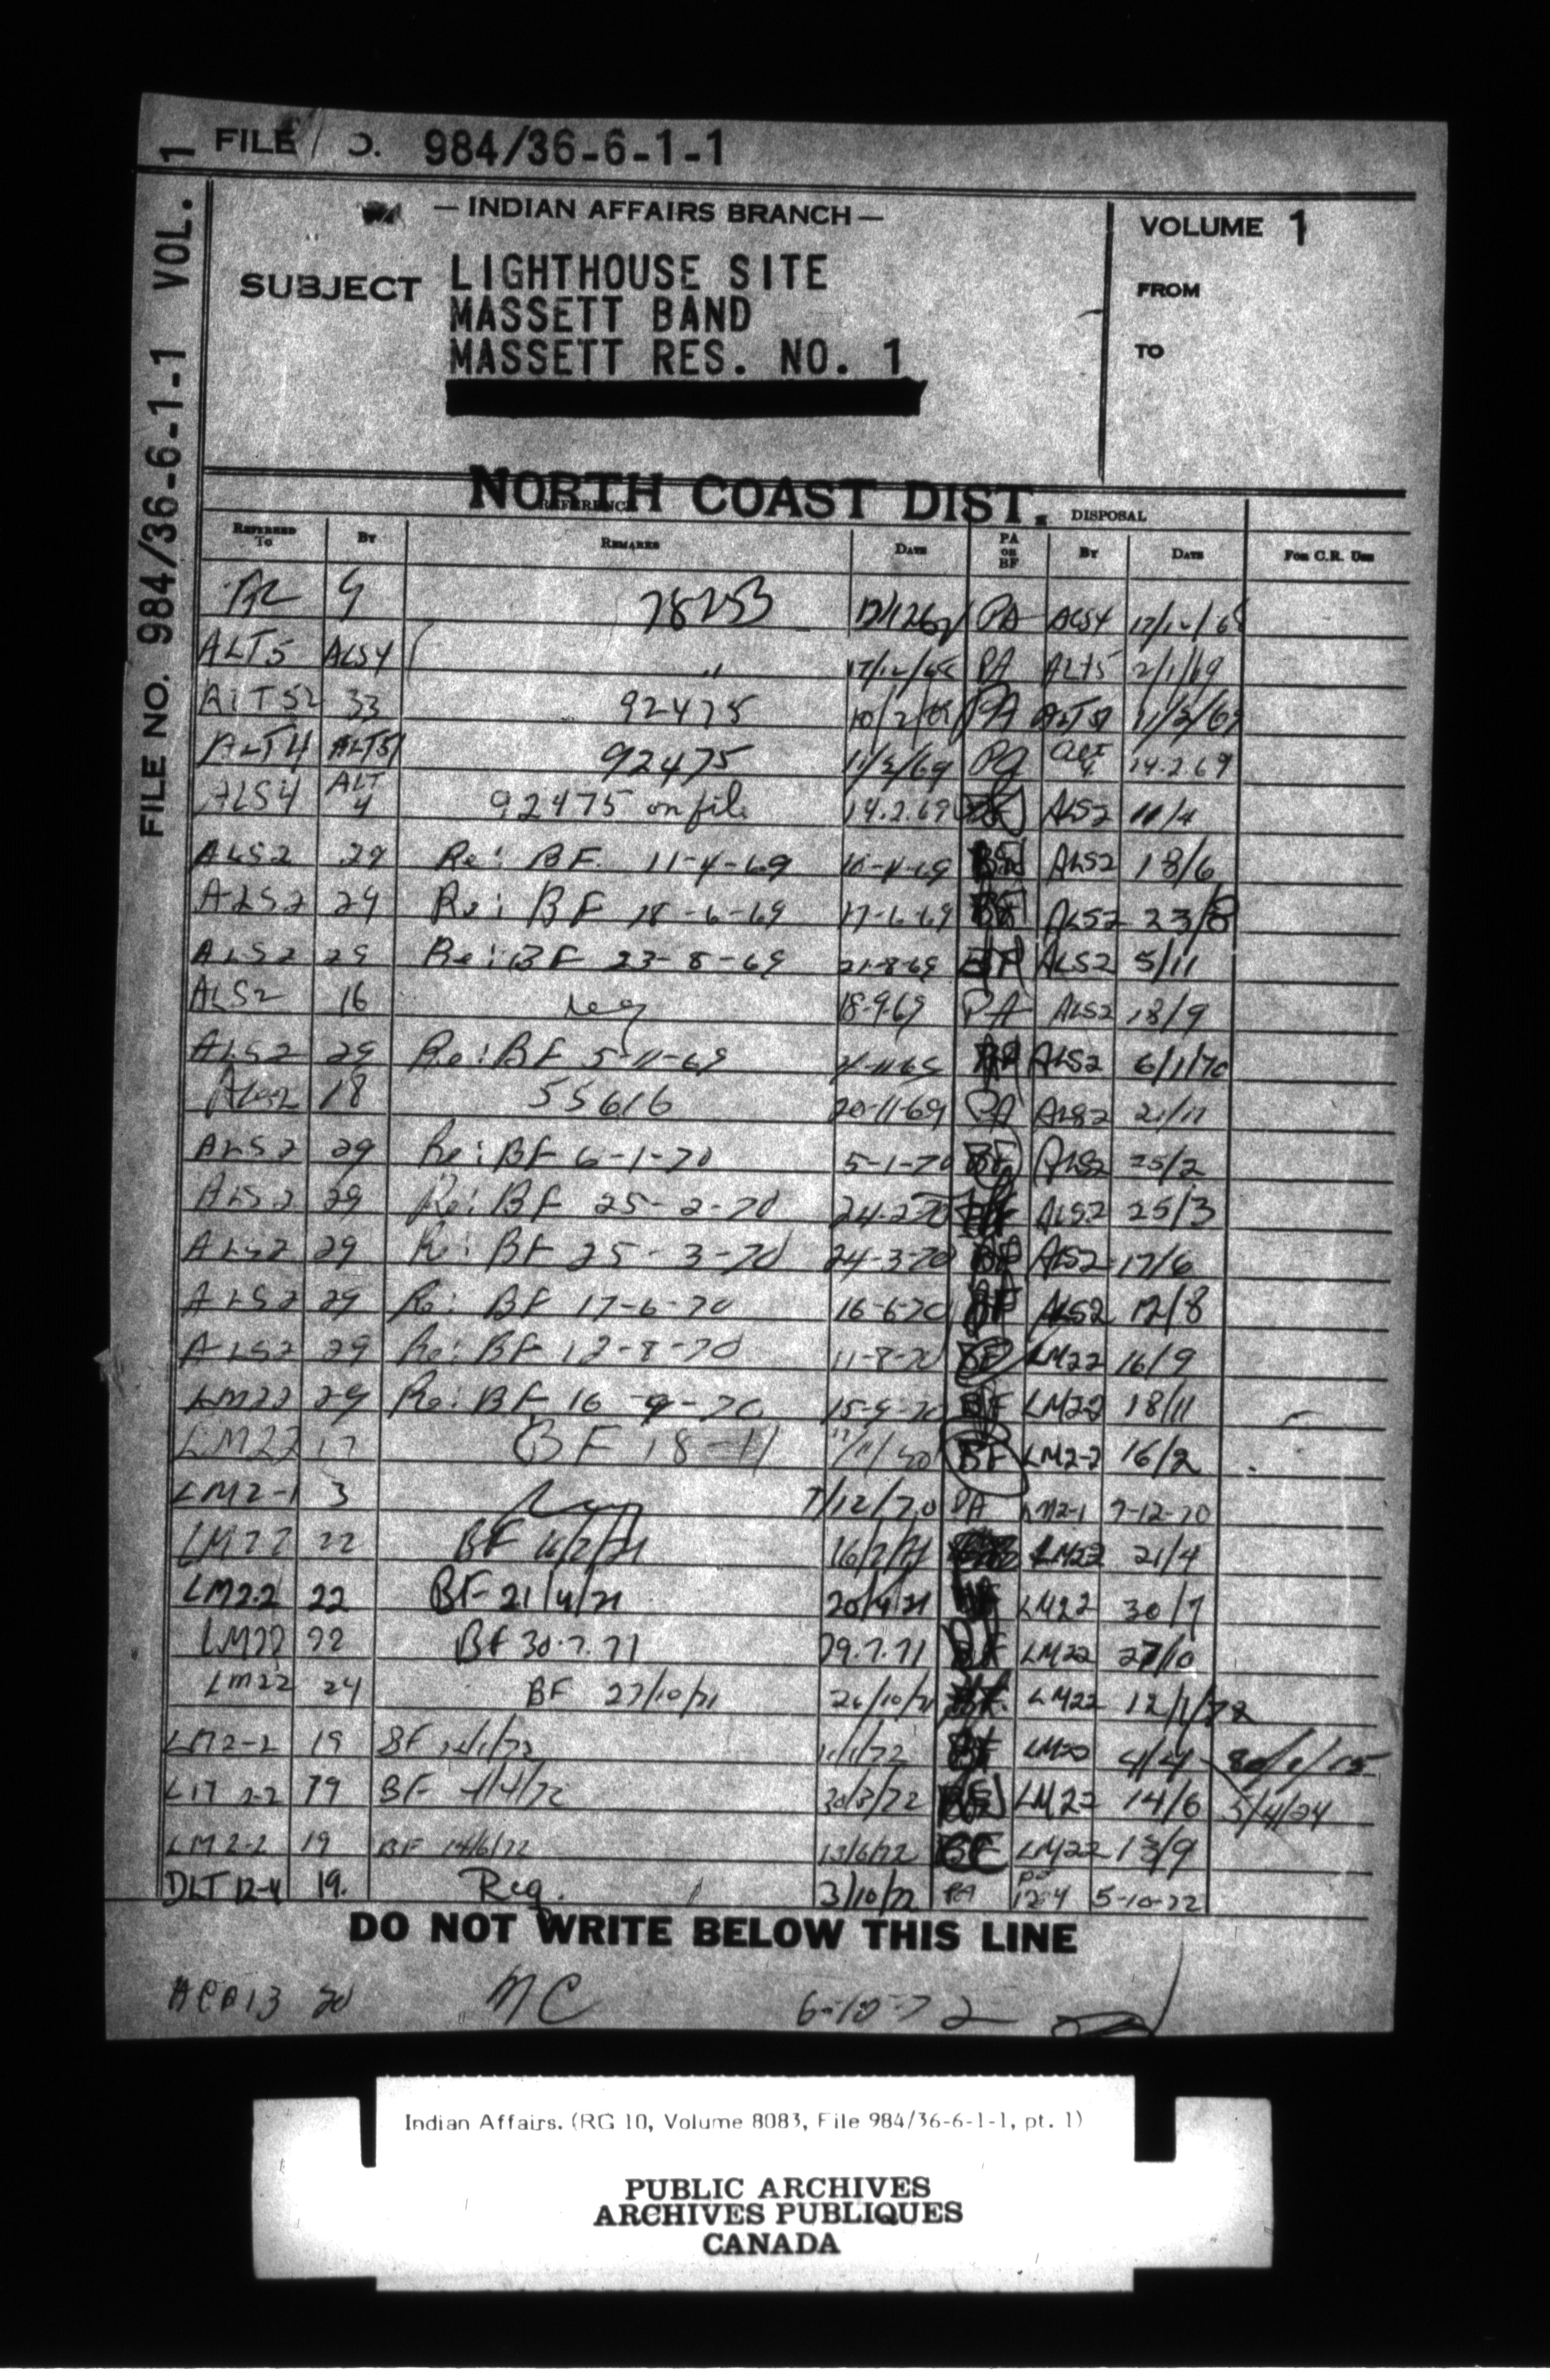 FILE NO. 984/36-6-1-1 VOL. 1
FILE O. 984/36-6-1-1
— INDIAN AFFAIRS BRANCH —
VOLUME 1
SUBJECT LIGHTHOUSE SITE
MASSETT BAND
MASSETT RES. NO. 1
FROM
TO
NORTH COAST DIST.
REFERENCE DISPOSAL
REFERRED TO BY REMARKS DATE PA OR BF BY DATE FOR C.R. USE
9 78253 PA ALS4
ALT5 ALS4 " 17/12/68 PA ALT5 2/1/69
ALT52 33 92475 10/2/69 PA 11/2/69
ALT4 ALT51 92475 11/2/69 PA ALT 4 14.2.69
ALS4 ALT 4 92475 on file 14.2.69 BF ALS2 11/4
ALS2 29 Re: BF 11-4-69 10-4-69 BF ALS2 18/6
ALS2 29 Re: BF 18-6-69 17-6-69 BF ALS2 23/8
ALS2 29 Re: BF 23-8-69 21-8-69 BF ALS2 5/11
ALS2 16 req 18-9-69 PA ALS2 18/9
ALS2 29 Re: BF 5-11-69 4-11-69 BF ALS2 6/1/70
ALS2 18 55616 20-11-69 PA ALS2 21/11
ALS2 29 Re: BF 6-1-70 5-1-70 BF ALS2 25/2
ALS2 29 Re: BF 25-2-70 24-2-70 BF ALS2 25/3
ALS2 29 Re: BF 25-3-70 24-3-70 BF ALS2 17/6
ALS2 29 Re: BF 17-6-70 16-6-70 BF ALS2 12/8
ALS2 29 Re: BF 12-8-70 11-8-70 BF LM22 16/9
LM22 29 Re: BF 16-9-70 15-9-70 BF LM22 18/11
LM22 17 BF 18-11 BF LM2-2 16/2
LM2-1 3 Req 7/12/70 PA LM2-1 7-12-70
LM22 22 BF 16/2/71 16/2/71 LM22 21/4
LM22 22 BF 21/4/71 20/4/71 BF LM22 30/7
LM22 22 BF 30.7.71 29.7.71 BF LM22 27/10
LM22 24 BF 27/10/71 26/10/71 BF LM22 12/1/72
LM2-2 19 BF 12/1/72 11/1/72 BF LM22 4/4
LM 2-2 19 BF 4/4/72 30/3/72 BF LM22 14/6 5/4/24
LM2-2 19 BF 14/6/72 13/6/72 BF LM22 13/9
DLT 12-4 19. Req. 3/10/72 PA 12-4 5-10-72
DO NOT WRITE BELOW THIS LINE
20 MC 6-10-72
Indian Affairs. (RG 10, Volume 8083, File 984/36-6-1-1, pt. 1)
PUBLIC ARCHIVES
ARCHIVES PUBLIQUES
CANADA